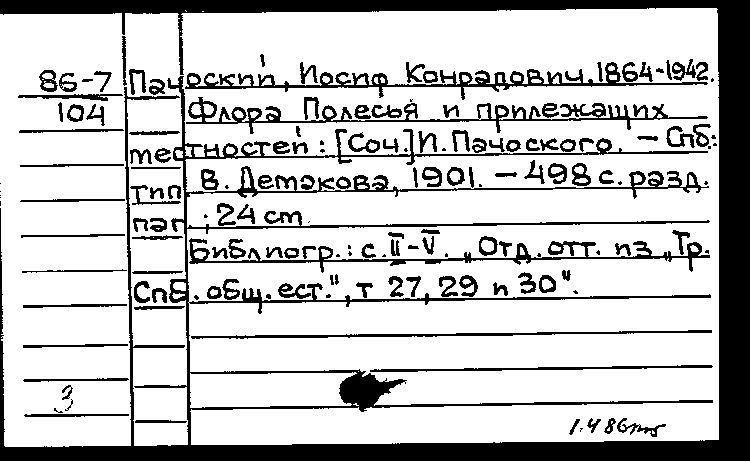 86-7 Пачоский, Иосиф Конрадович, 1864-1942.
104 Флора Полесья и прилежащих
местностей: [Соч.] И. Пачоского. — Спб:
тип. В. Демакова, 1901. — 498 с. разд.
паг.; 24 см.
Библиогр.: с. II-V. „Отд. отт. из „Тр.
Спб. общ. ест.", т 27, 29 и 30".
3